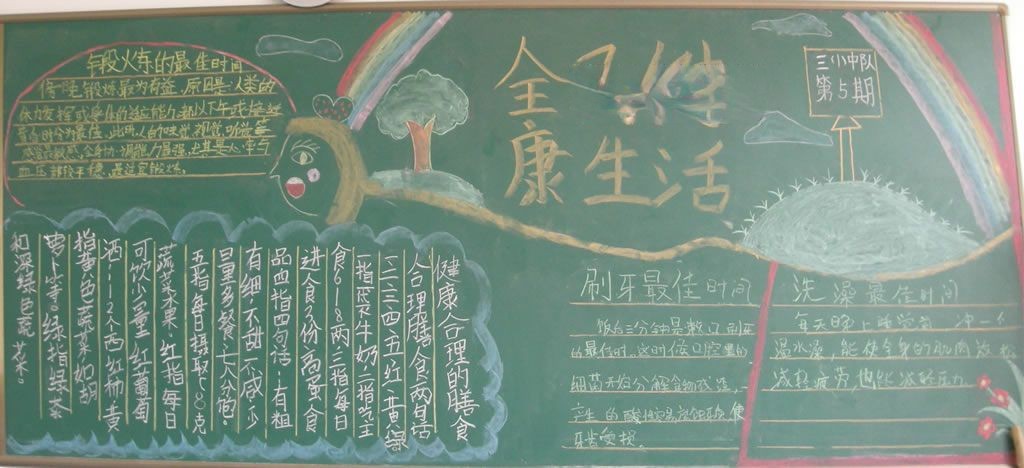 锻炼的最佳时间
傍晚锻炼最为有益，原因是：人类的
体力发挥或身体的适应能力，都以下午或接近
黄昏时分为最佳。此时，人的味觉、视觉、听觉等
感觉最敏感，全身协调能力最强，尤其是心率与
血压都较平稳，最适宜锻炼。
全
康生活
三小中队
第5期
健康合理的膳食
合理膳食两句话
一二三四五红黄绿
一指一天牛奶，二指吃主
食6-8两，三指每日
进食3份高蛋食
品四指四句话：有粗
有细不甜不咸，少
量多餐七八分饱。
五指每日摄取500克
蔬菜果，红指每日
可饮少量红葡萄
酒，1-2个西红柿，黄
指黄色蔬菜如胡
萝卜等。绿指绿茶
和深绿色蔬菜。
刷牙最佳时间
饭后三分钟是
的最佳时，这时候口腔里的
细菌开始分解食物残渣，
产生的酸性
牙齿受损。
洗澡最佳时间
每天晚上睡觉前，冲一个
温水澡，能使全身的肌肉放松
减轻疲劳